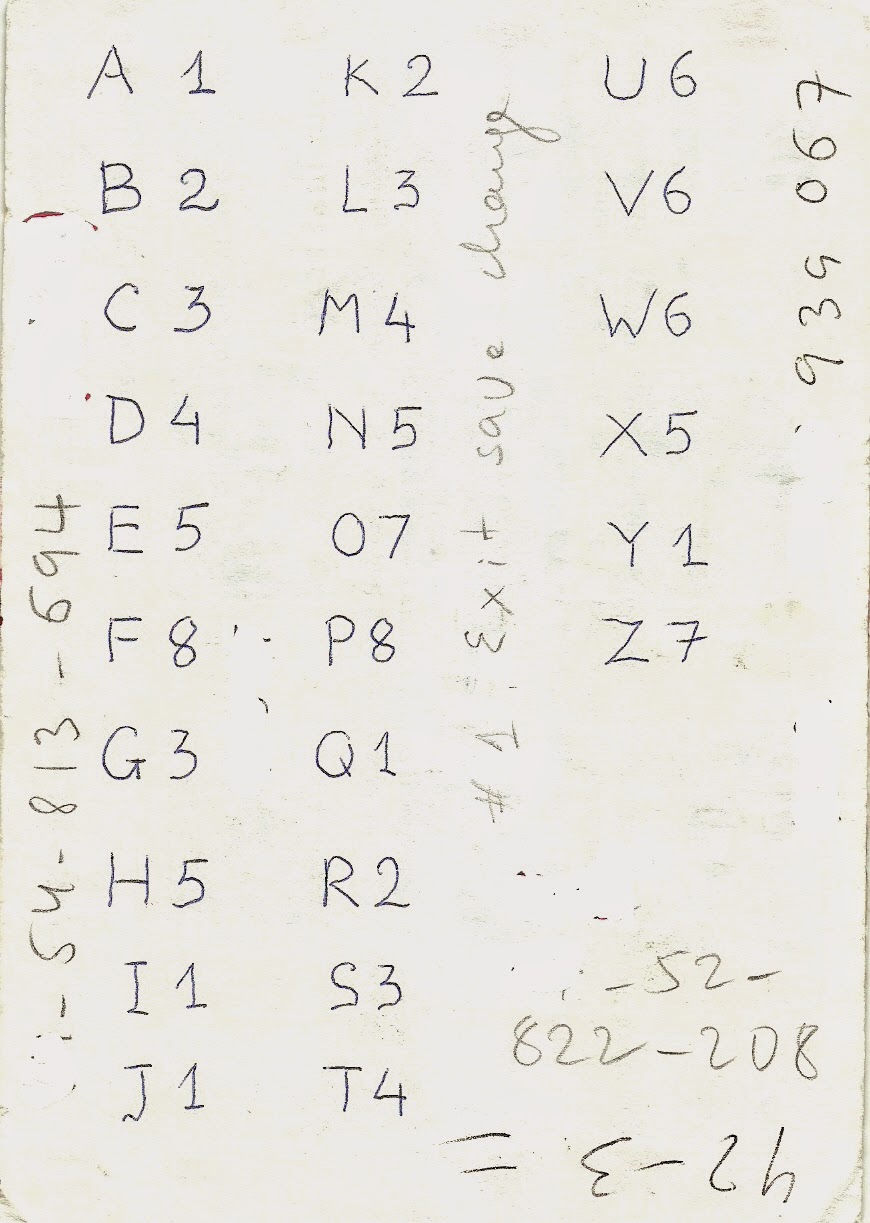 A 1
B 2
C 3
D 4
E 5
F 8
G 3
H 5
I 1
J 1
K 2
L 3
M 4
N 5
O 7
P 8
Q 1
R 2
S 3
T 4
U 6
V 6
W 6
X 5
Y 1
Z 7
-54-813-694
# 1: Exit save change
939 067
-52-
822-208
42-3 =